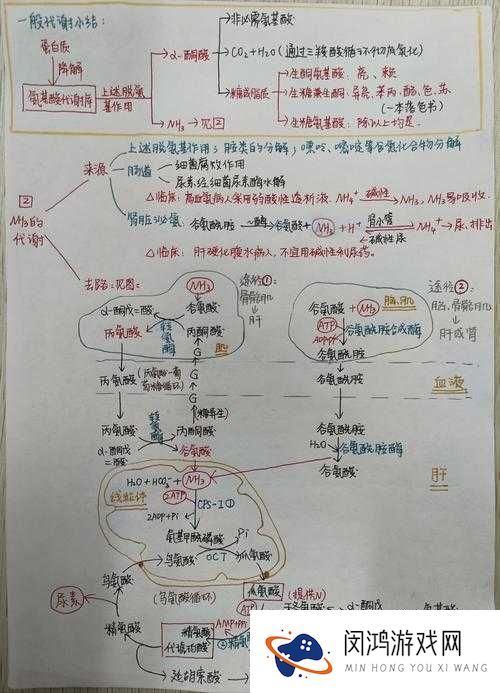 一般代谢小结：
蛋白质
降解
氨基酸代谢库
上述脱氨基作用
α-酮酸
非必需氨基酸
CO₂+H₂O（通过三羧酸循环彻底氧化）
糖或脂质
生酮氨基酸：亮、赖
生糖兼生酮：异亮、苯丙、酪、色、苏
（一本落色书）
生糖氨基酸：除以上均是.
NH₃→见②
②
NH₃的代谢
来源
上述脱氨基作用；胺类的分解；嘌呤、嘧啶等含氮化合物分解
肠道
细菌腐败作用
尿素经细菌尿素酶水解
△临床：高血氨病人采用弱酸性透析液. NH₄⁺ 碱性 NH₃, NH₃易吸收.
肾脏泌氨
谷氨酰胺 酶 谷氨酸+NH₃+H⁺ 肾小管 NH₄⁺→尿, 排出
碱性尿
△临床：肝硬化腹水病人，不宜用碱性利尿药。
去路：见图：
NH₃
途径①：
骨骼肌
肝
α-酮戊二酸
谷氨酸
转氨酶
丙氨酸
丙酮酸
肌
G
途径②：
脑、骨骼肌
肝或肾
谷氨酸+NH₃
脑、肌
ATP
谷氨酰胺合成酶
ADP+Pi
谷氨酰胺
丙氨酸
（丙氨酸-葡萄糖循环）
G
谷氨酰胺
血液
丙氨酸
G
（糖异生）
转氨酶
丙酮酸
α-酮戊二酸
谷氨酸
谷氨酰胺
H₂O
谷氨酰胺酶
谷氨酸
肝
H₂O+HCO₃⁻+NH₃
线粒体
2ATP
CPS-Ⅰ①
2ADP+Pi
氨基甲酰磷酸
Pi
鸟氨酸
OCT
瓜氨酸
鸟氨酸
（鸟氨酸循环）
瓜氨酸
（提供N）
尿素
ATP
α-酮戊
AMP+PPi
精氨酸
精氨酸
代琥珀酸
延胡索酸
闵鸿游戏网
MIN HONG YOU XI WANG